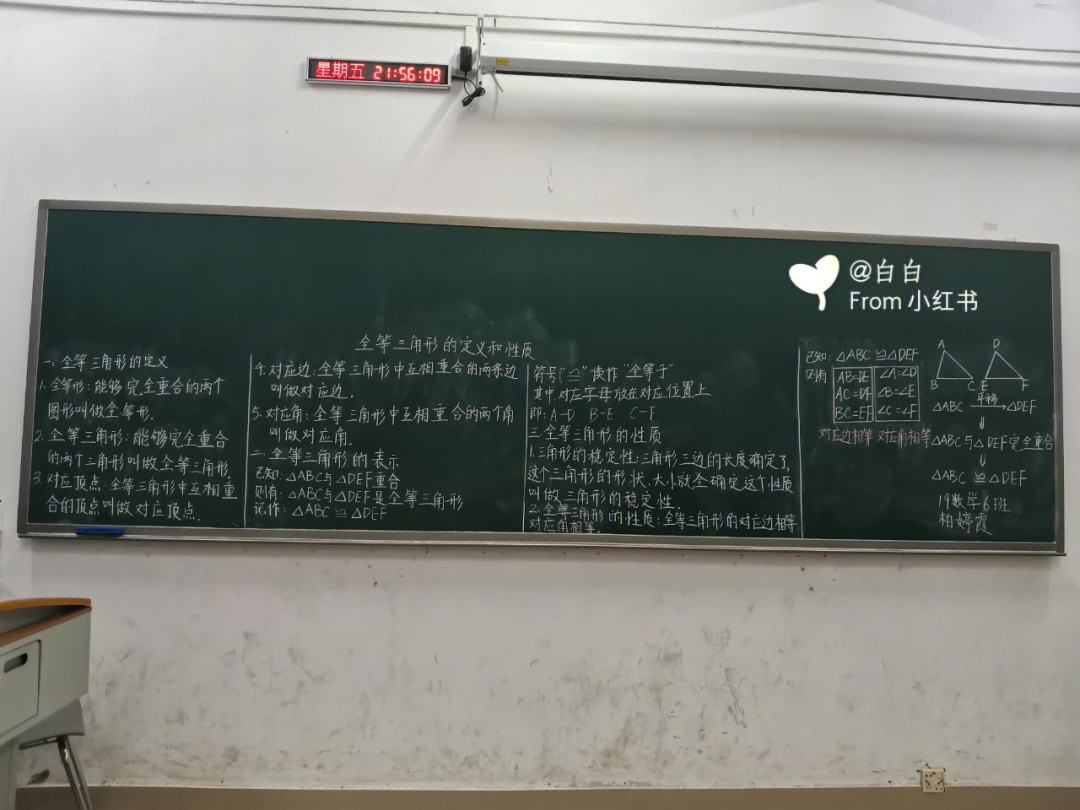 星期五 21:56:09
@白白
From 小红书
全等三角形的定义和性质
一、全等三角形的定义
1.全等形:能够完全重合的两个
图形叫做全等形.
2.全等三角形:能够完全重合
的两个三角形叫做全等三角形.
3.对应顶点:全等三角形中互相重
合的顶点叫做对应顶点.
4.对应边:全等三角形中互相重合的两条边
叫做对应边.
5.对应角:全等三角形中互相重合的两个角
叫做对应角.
二.全等三角形的表示
已知:△ABC与△DEF重合
则有:△ABC与△DEF是全等三角形
记作:△ABC≌△DEF
符号“≌”读作“全等于”
其中,对应字母放在对应位置上
即:A-D B-E C-F
三.全等三角形的性质
1.三角形的稳定性:三角形三边的长度确定了,
这个三角形的形状、大小就全确定这个性质
叫做三角形的稳定性.
2.全等三角形的性质:全等三角形的对应边相等
对应角相等.
已知:△ABC≌△DEF
则有
AB=DE ∠A=∠D
AC=DF ∠B=∠E
BC=EF ∠C=∠F
对应边相等 对应角相等
A D
B C E F
△ABC 平移 △DEF
△ABC与△DEF完全重合
△ABC≌△DEF
19数学6班
柏婷霞